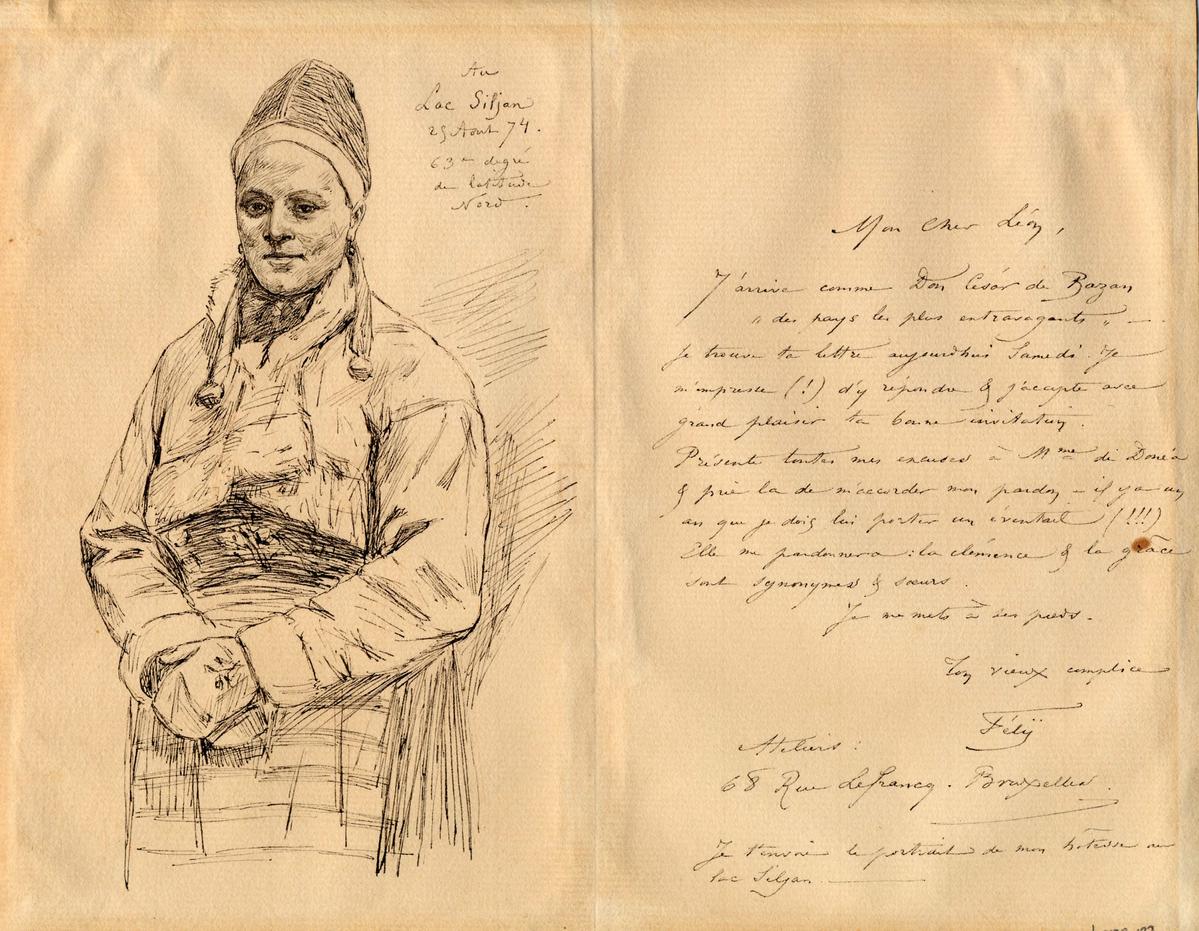 Au
Lac Siljan
25 Aout 74.
63e degré
de latitude
Nord.
Mon cher Léon,
J'arrive comme Don César de Bazan
"des pays les plus extravagants" —
je trouve ta lettre aujourdhui Samedi. Je
m'empresse (!) d'y repondre & j'accepte avec
grand plaisir ta bonne invitation.
Présente toutes mes excuses à Mme di
& prie la de m'accorder mon pardon – il y a un
an que je dois lui porter un éventail (!!!)
Elle me pardonnera : la clémence & la grâce
sont synonymes & sœurs.
Je me mets à ses pieds.
Ton vieux complice
Félÿ
Ateliers :
68 Rue Lefrancq. Bruxelles.
Je t'envoie le portrait de mon hôtesse au
lac Siljan.